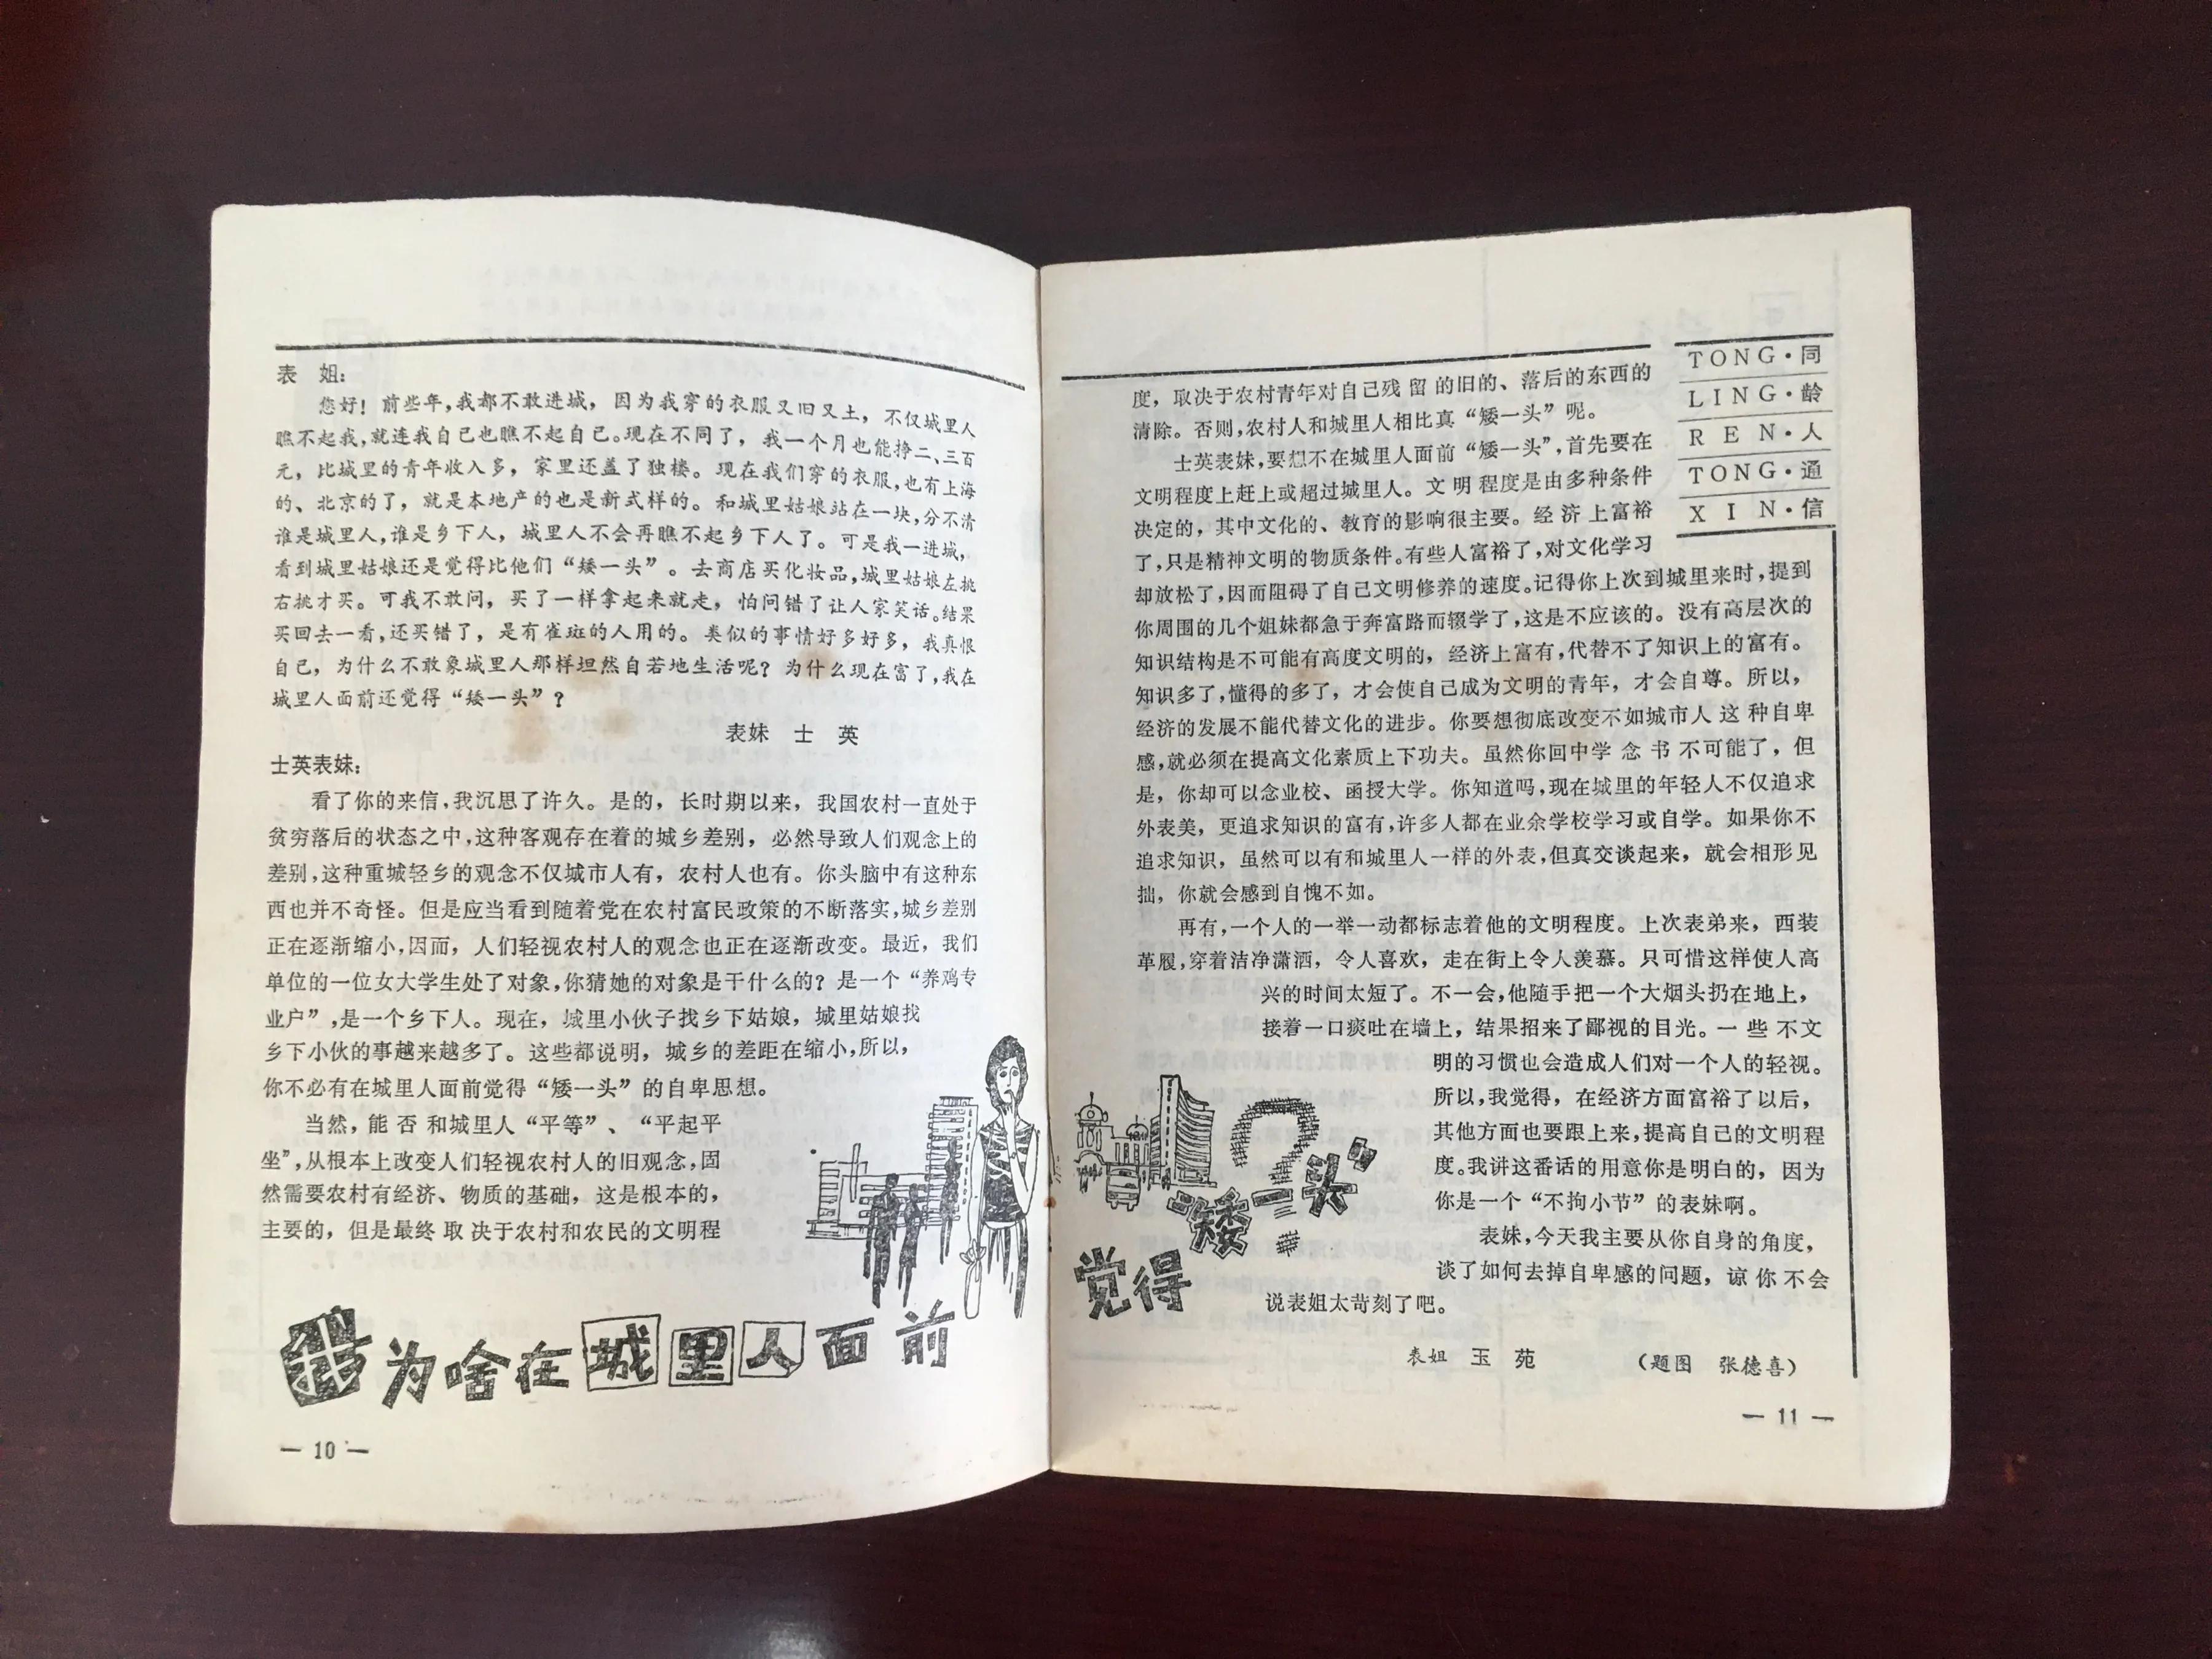 表　姐：
您好！前些年，我都不敢进城，因为我穿的衣服又旧又土，不仅城里人
瞧不起我，就连我自己也瞧不起自己。现在不同了，我一个月也能挣二、三百
元，比城里的青年收入多，家里还盖了独楼。现在我们穿的衣服，也有上海
的、北京的了，就是本地产的也是新式样的。和城里姑娘站在一块，分不清
谁是城里人，谁是乡下人，城里人不会再瞧不起乡下人了。可是我一进城，
看到城里姑娘还是觉得比他们“矮一头”。去商店买化妆品，城里姑娘左挑
右挑才买。可我不敢问，买了一样拿起来就走，怕问错了让人家笑话。结果
买回去一看，还买错了，是有雀斑的人用的。类似的事情好多好多，我真恨
自己，为什么不敢象城里人那样坦然自若地生活呢？为什么现在富了，我在
城里人面前还觉得“矮一头”？
表妹　士　英
士英表妹：
看了你的来信，我沉思了许久。是的，长时期以来，我国农村一直处于
贫穷落后的状态之中，这种客观存在着的城乡差别，必然导致人们观念上的
差别，这种重城轻乡的观念不仅城市人有，农村人也有。你头脑中有这种东
西也并不奇怪。但是应当看到随着党在农村富民政策的不断落实，城乡差别
正在逐渐缩小，因而，人们轻视农村人的观念也正在逐渐改变。最近，我们
单位的一位女大学生处了对象，你猜她的对象是干什么的？是一个“养鸡专
业户”，是一个乡下人。现在，城里小伙子找乡下姑娘，城里姑娘找
乡下小伙的事越来越多了。这些都说明，城乡的差距在缩小，所以，
你不必有在城里人面前觉得“矮一头”的自卑思想。
当然，能否和城里人“平等”、“平起平
坐”，从根本上改变人们轻视农村人的旧观念，固
然需要农村有经济、物质的基础，这是根本的，
主要的，但是最终取决于农村和农民的文明程
我为啥在城里人面前
— 10 —
TONG·同
LING·龄
REN·人
TONG·通
XIN·信
度，取决于农村青年对自己残留的旧的、落后的东西的
清除。否则，农村人和城里人相比真“矮一头”呢。
士英表妹，要想不在城里人面前“矮一头”，首先要在
文明程度上赶上或超过城里人。文明程度是由多种条件
决定的，其中文化的、教育的影响很主要。经济上富裕
了，只是精神文明的物质条件。有些人富裕了，对文化学习
却放松了，因而阻碍了自己文明修养的速度。记得你上次到城里来时，提到
你周围的几个姐妹都急于奔富路而辍学了，这是不应该的。没有高层次的
知识结构是不可能有高度文明的，经济上富有，代替不了知识上的富有。
知识多了，懂得的多了，才会使自己成为文明的青年，才会自尊。所以，
经济的发展不能代替文化的进步。你要想彻底改变不如城市人这种自卑
感，就必须在提高文化素质上下功夫。虽然你回中学念书不可能了，但
是，你却可以念业校、函授大学。你知道吗，现在城里的年轻人不仅追求
外表美，更追求知识的富有，许多人都在业余学校学习或自学。如果你不
追求知识，虽然可以有和城里人一样的外表，但真交谈起来，就会相形见
拙，你就会感到自愧不如。
再有，一个人的一举一动都标志着他的文明程度。上次表弟来，西装
革履，穿着洁净潇洒，令人喜欢，走在街上令人羡慕。只可惜这样使人高
兴的时间太短了。不一会，他随手把一个大烟头扔在地上，
接着一口痰吐在墙上，结果招来了鄙视的目光。一些不文
明的习惯也会造成人们对一个人的轻视。
所以，我觉得，在经济方面富裕了以后，
其他方面也要跟上来，提高自己的文明程
度。我讲这番话的用意你是明白的，因为
你是一个“不拘小节”的表妹啊。
表妹，今天我主要从你自身的角度，
谈了如何去掉自卑感的问题，谅你不会
说表姐太苛刻了吧。
觉得
“矮一头”
？
表姐　玉　苑
（题图　张德喜）
— 11 —